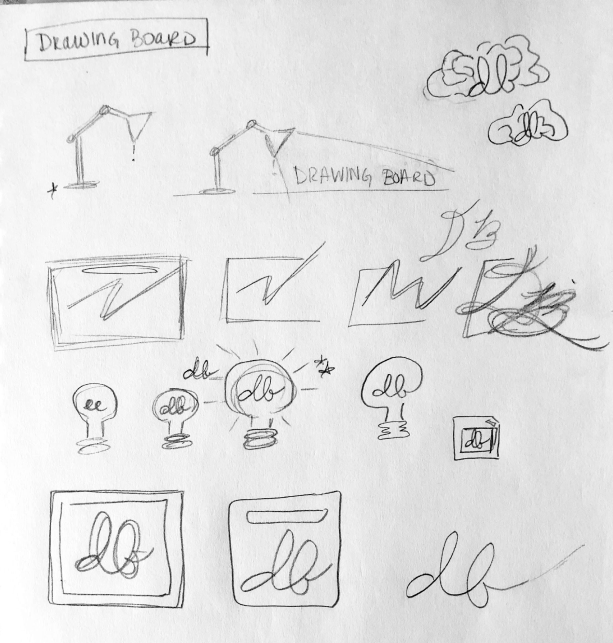 DRAWING BOARD
db
db
DRAWING BOARD
DB
db
ee
db
db
db
db
db
db
db